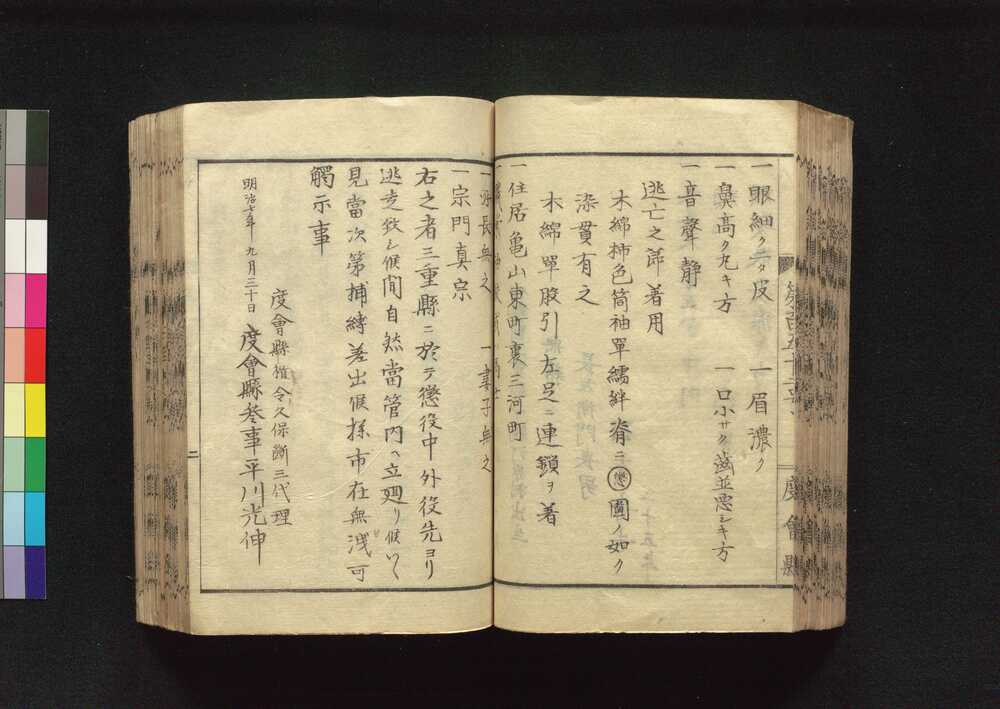 一眼細ク二タ皮 一眉濃ク
一鼻高ク九キ方 一口小サク歯並悪シキ方
一音聲静
逃亡之節着用
木綿柿色筒袖單繻絆脊ニ懲圖ノ如ク
染貫有之
木綿單股引左足ニ連鎖ヲ着
一住居亀山東町裏三河町
無之 一妻子無之
一宗門真宗
右之者三重縣ニ於テ懲役中外役先ヨリ
逃走致シ候間自然當管内ヘ立廻リ候ハヽ
見當次第捕縛差出候様市在無洩可
觸示事
度會縣權令久保断三代理
明治七年九月三十日 度會縣参事平川光伸
二
度會縣